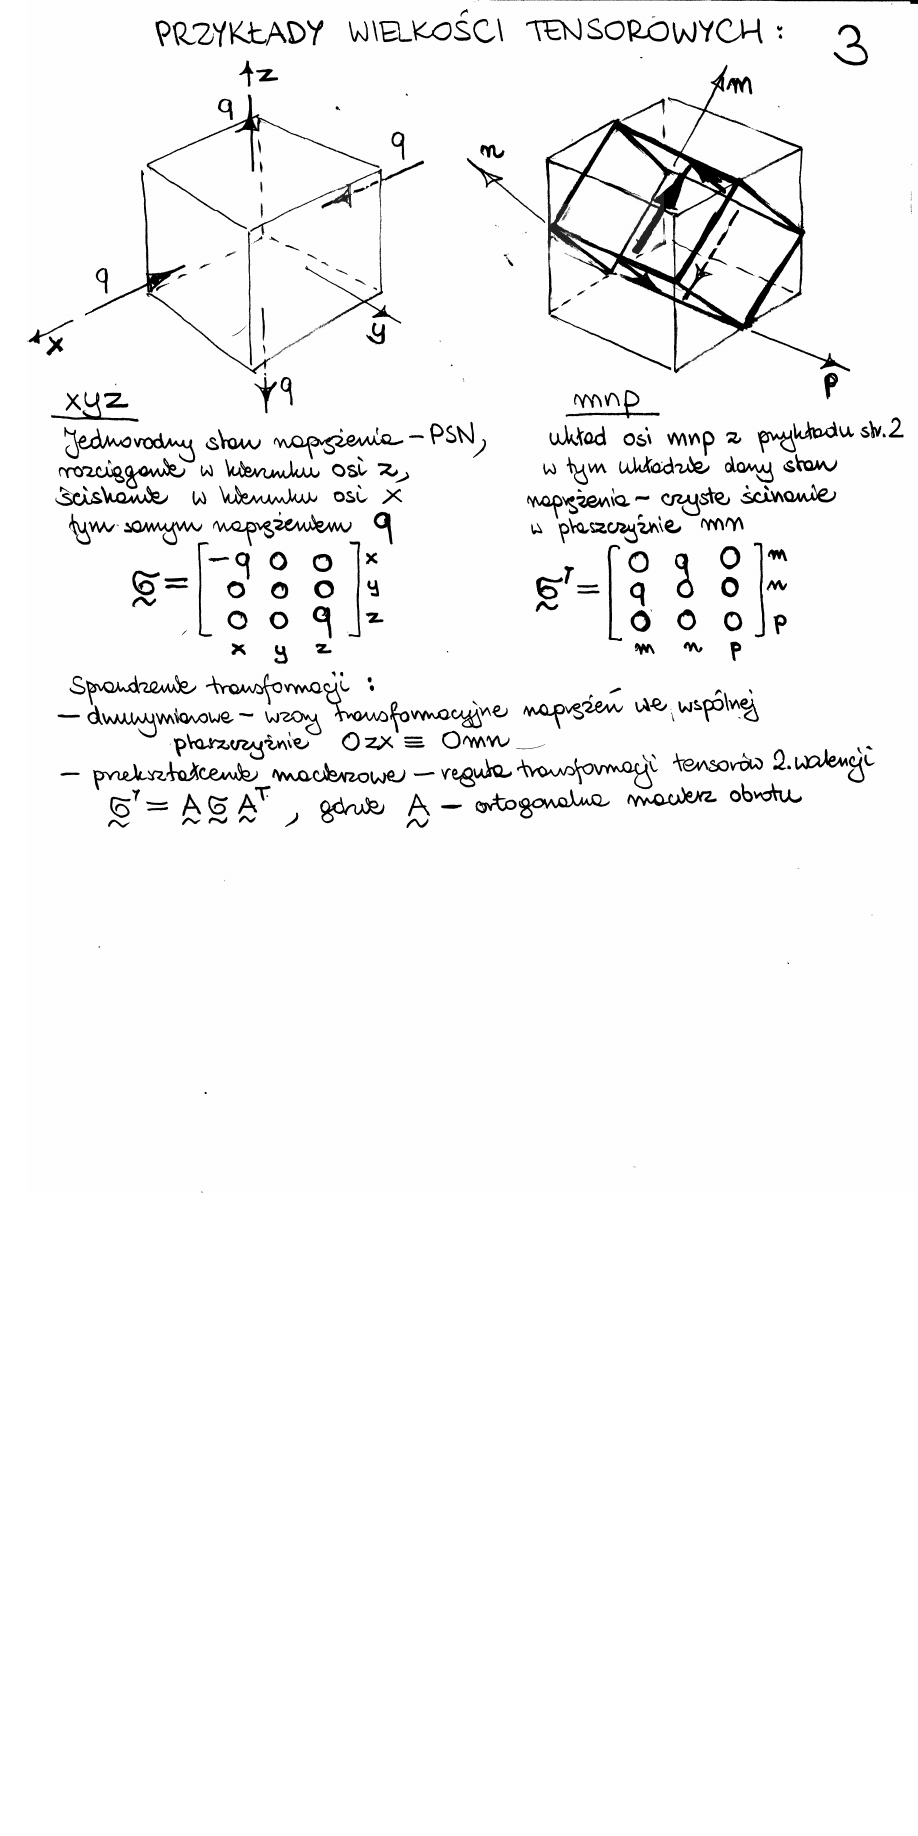 PRZYKŁADY WIELKOŚCI TENSOROWYCH : 3
z
q
q
q
x
y
q
m
n
p
xyz
Jednorodny stan naprężenia – PSN,
rozciąganie w kierunku osi z,
ściskanie w kierunku osi x
tym samym naprężeniem q
σ = [ -q 0 0 ] x
0 0 0 y
0 0 q z
x y z
mnp
układ osi mnp z przykładu str. 2
w tym układzie dany stan
naprężenia – czyste ścinanie
w płaszczyźnie mn
σ' = [ 0 q 0 ] m
q 0 0 n
0 0 0 p
m n p
Sprawdzenie transformacji :
– dwuwymiarowe – wzory transformacyjne naprężeń we wspólnej
płaszczyźnie Ozx ≡ Omn
– przekształcenie macierzowe – reguła transformacji tensorów 2. walencji
σ' = A σ Aᵀ , gdzie A – ortogonalna macierz obrotu